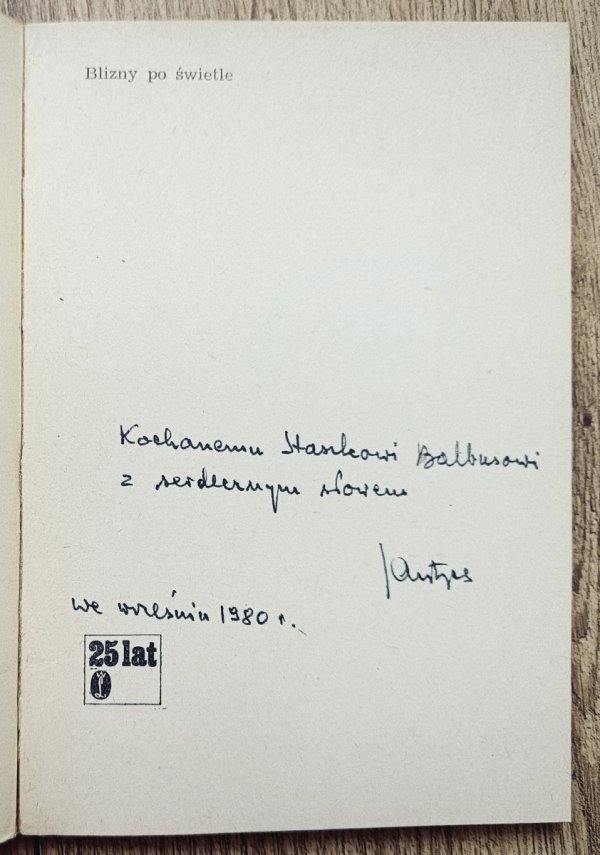 Blizny po świetle
Kochanemu Staszkowi Balbusowi
z serdecznym słowem
we wrześniu 1980 r.
25 lat